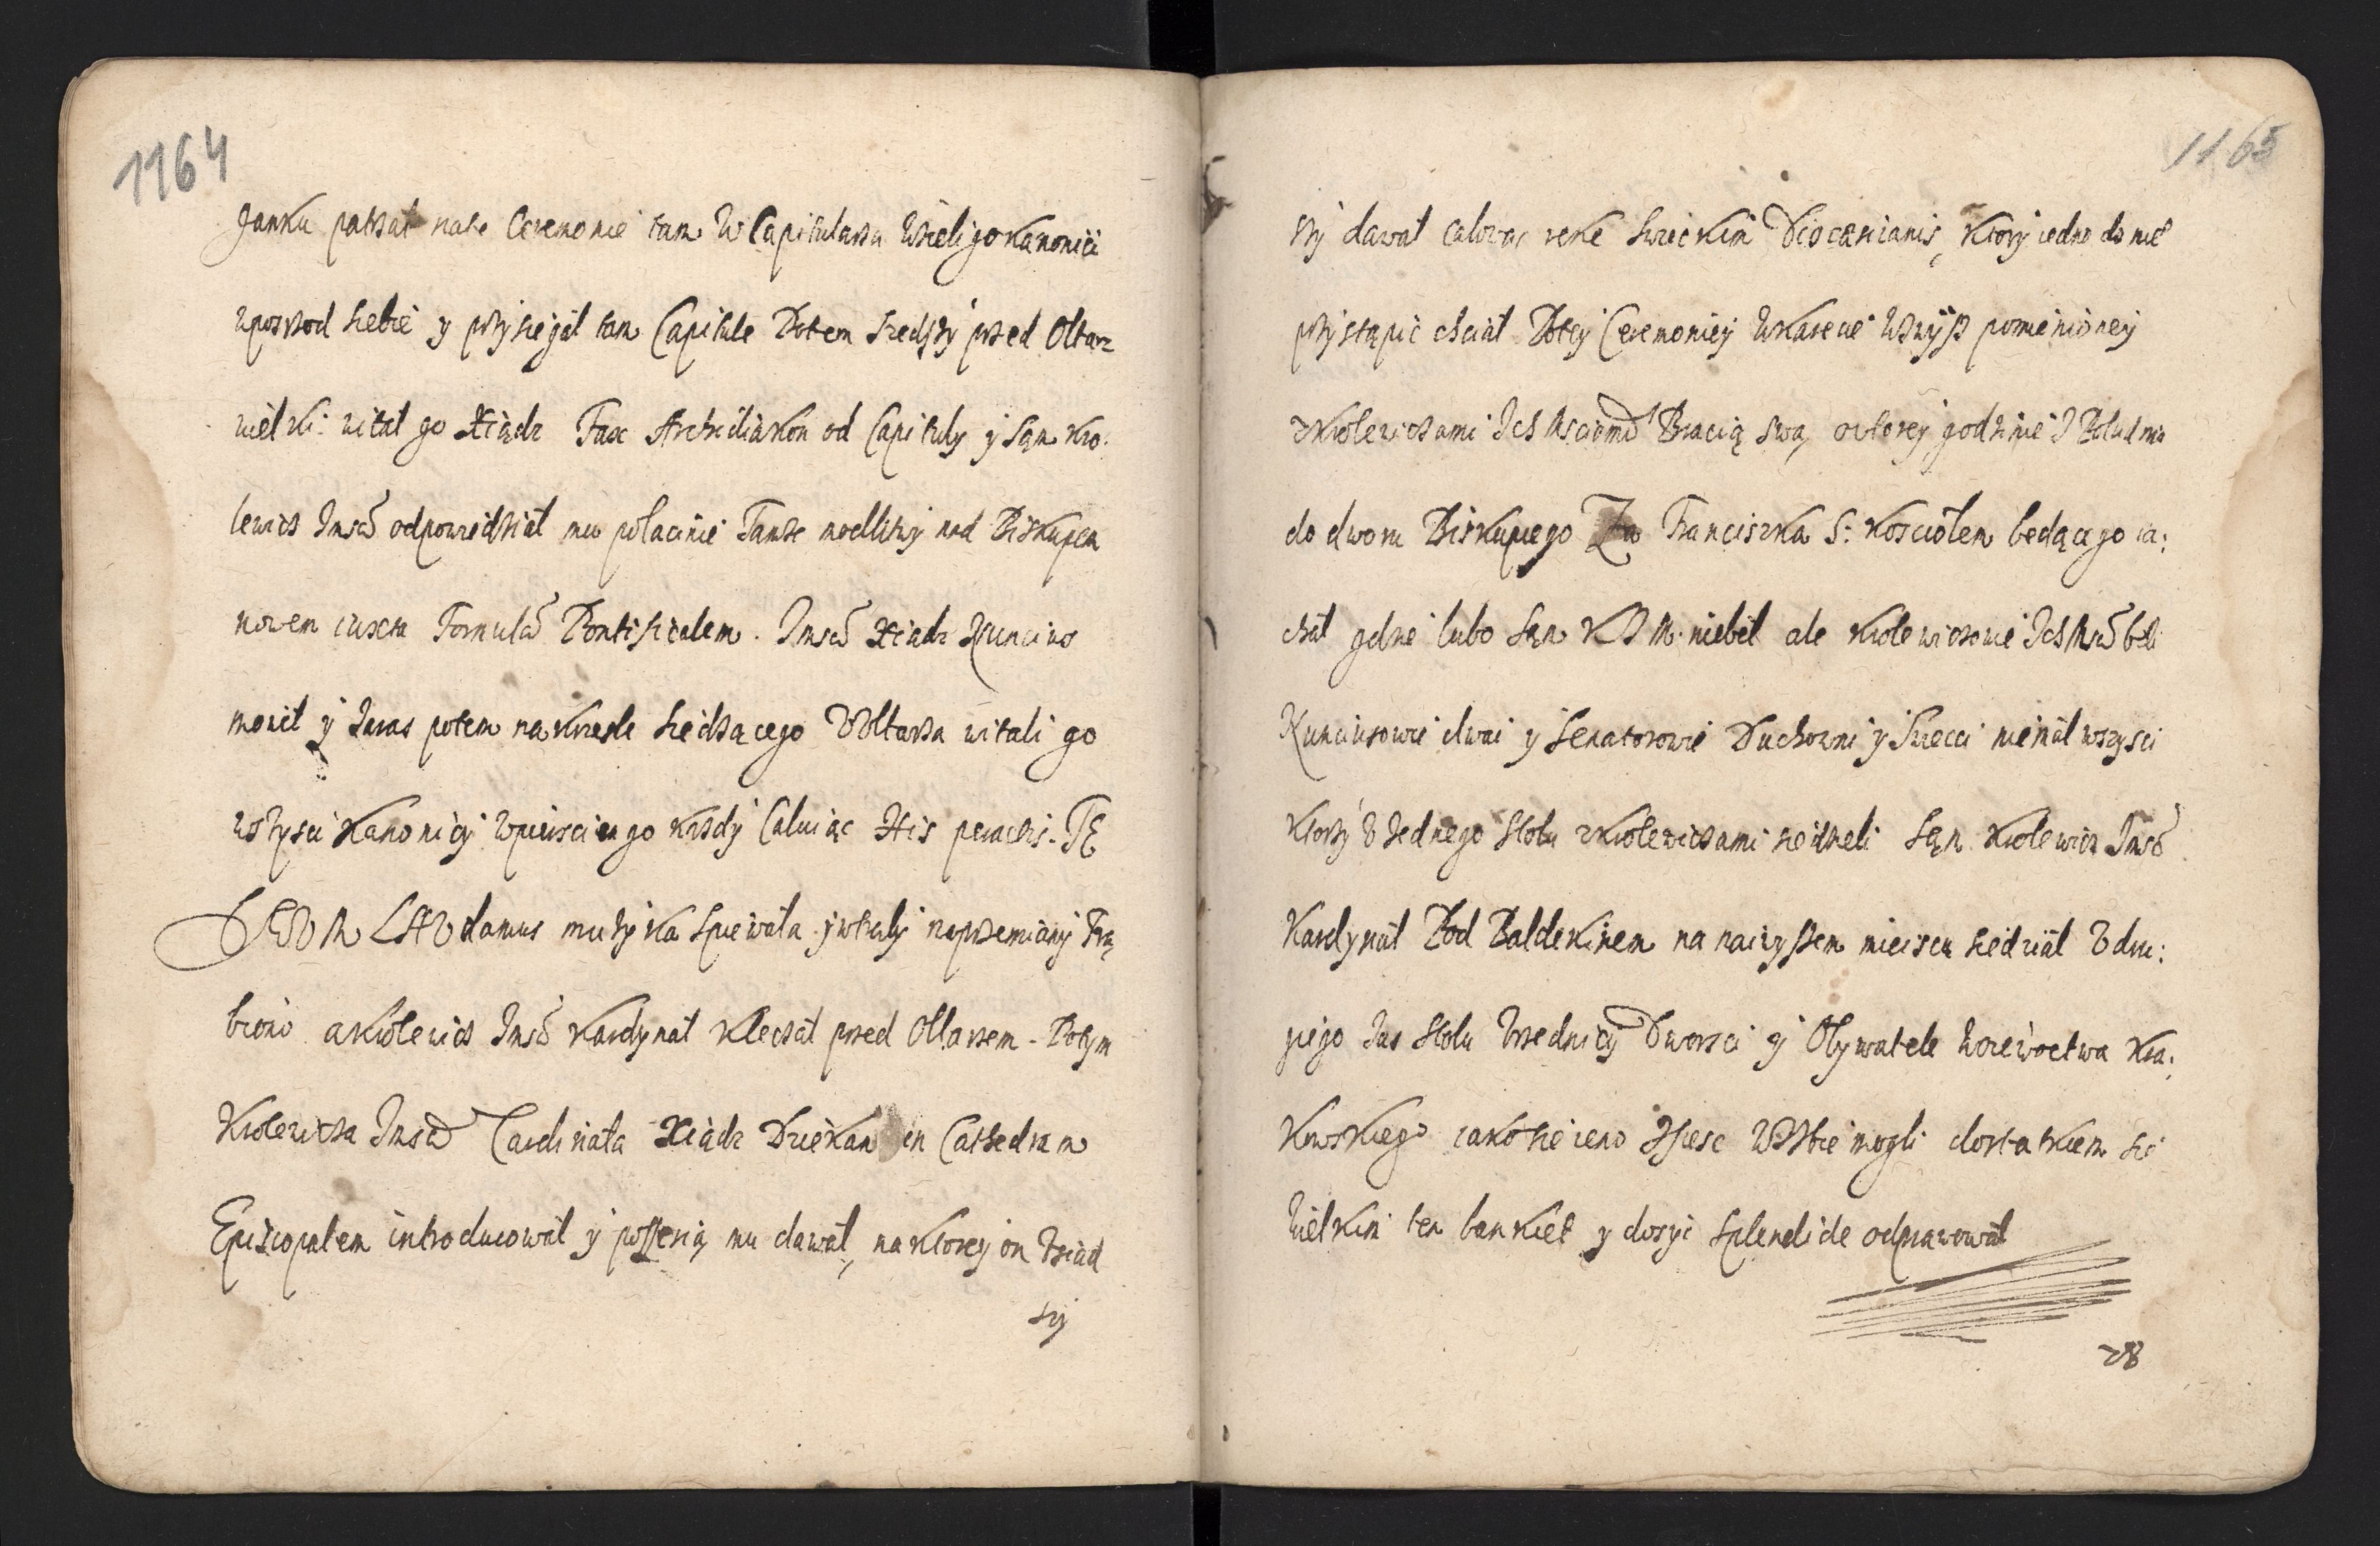 1164
ganku patrzał nate Ceremonie tam W Capitularzu Wzieli go kanonici
wposrod siebie y przysięgał tam Capitule Potem szedszy przed Oltarz
wielki: witał go Xiądz Fax Archidiakon od Capituły y Sąn Kro:
lewicz Jmść odpowiedział mu połacinie Tamże modlitwy nad Biskupem
nowem iuxta Formulā Pontificalem. Jmść Xiądz Nuncius
mowił y zaras potem na krześle siedzącego V Ołtarza witali go
wszysci Kanonicy wpierscien go każdy Całuiąc His peractis. TE
DEVM LAVdamus muzyka spiewała y wtrąby naprzemiany Trą
biono a Krolewicz Jmść Kardynał Klęczał przed Ołtarzem. Potym
Krolewicza Jmści Cardinała Xiądz Dziekan in Cathedram
Episcopalem introducował y possesią mu dawał, na ktorey ón Wsiad
szy
1165
szy dawał całować rękę swieckim Diocæsianis, ktory iedno do nie°
przystąpić chciał Potey Ceremoniey Wkarecie Wzwysz pomienioney
z Krolewiczami Ich Msciami Bracią swą, owtorey godzinie z Południa
do dworu Biskupiego Za Franciszka S: kosciołem będącego ia:
chał gdzie lubo Sąn K J M. niebeł ale Krolewiczowie Ich Mść beli
Nunciuszowie dwai y Senatorowie Duchowni y Swiecci niemal wszysci
Ktorzy V Jednego stołu z Krolewiczami siedzieli Sąn Krolewicz Jmść
Kardynał Pod Baldekinem na naiwysszem mieiscu siedział V dru:
giego zas stołu Vrzednicy Dworscy y Obywatele Woiewoctwa Kra:
kowskiego iako sie ieno zmiesc W Izbie mogli dostatkiem sie
Wielkim ten bankiet y dosyć splendide odprawował
28